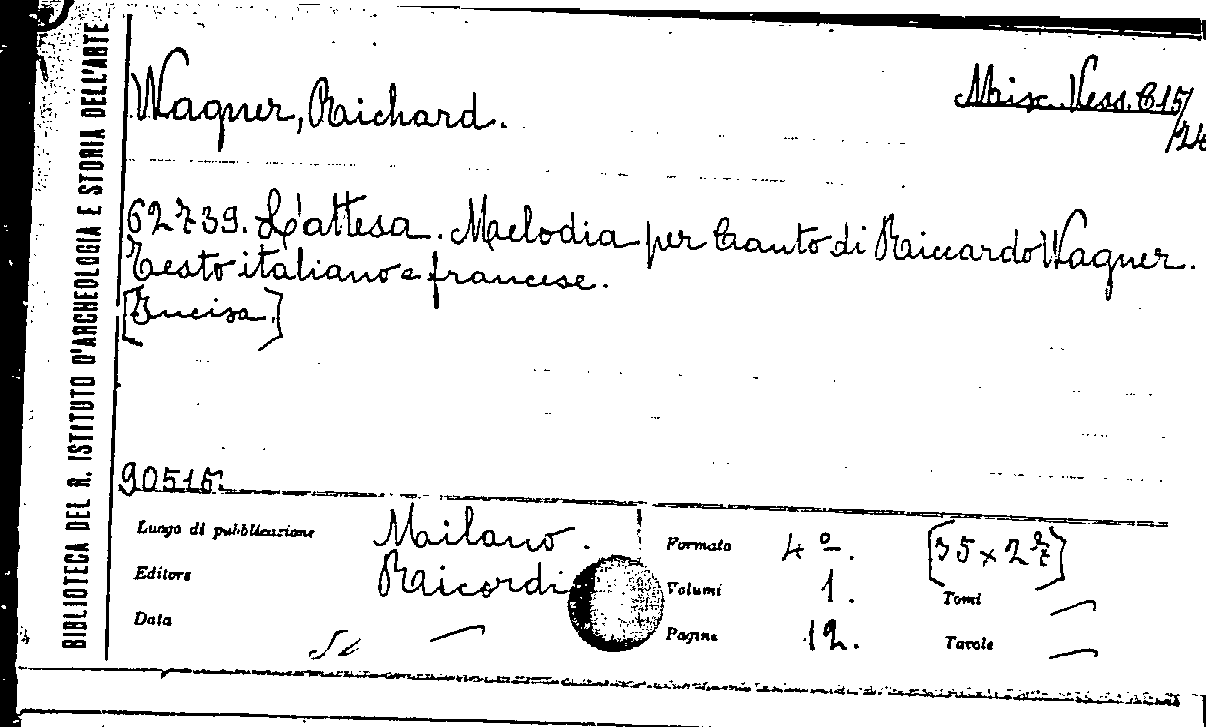 BIBLIOTECA DEL R. ISTITUTO D'ARCHEOLOGIA E STORIA DELL'ARTE
Wagner, Richard.
Misc. Vess. C 15/
/24
62739. L'attesa. Melodia per Canto di Riccardo Wagner.
Testo italiano e francese.
[Incisa.]
90515.
Luogo di pubblicazione Milano. Formato 4º. [35 x 27]
Editore Ricordi Volumi 1. Tomi —
Data — Pagine 12. Tavole —